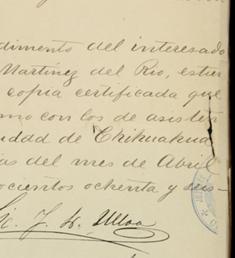 dimento del interesado
Martínez del Rio, estien
copia certificada que
mo con los de asisten
udad de Chihuahua
as del mes de Abril
ocientos ochenta y seis-
Lic. J. H. Ulloa